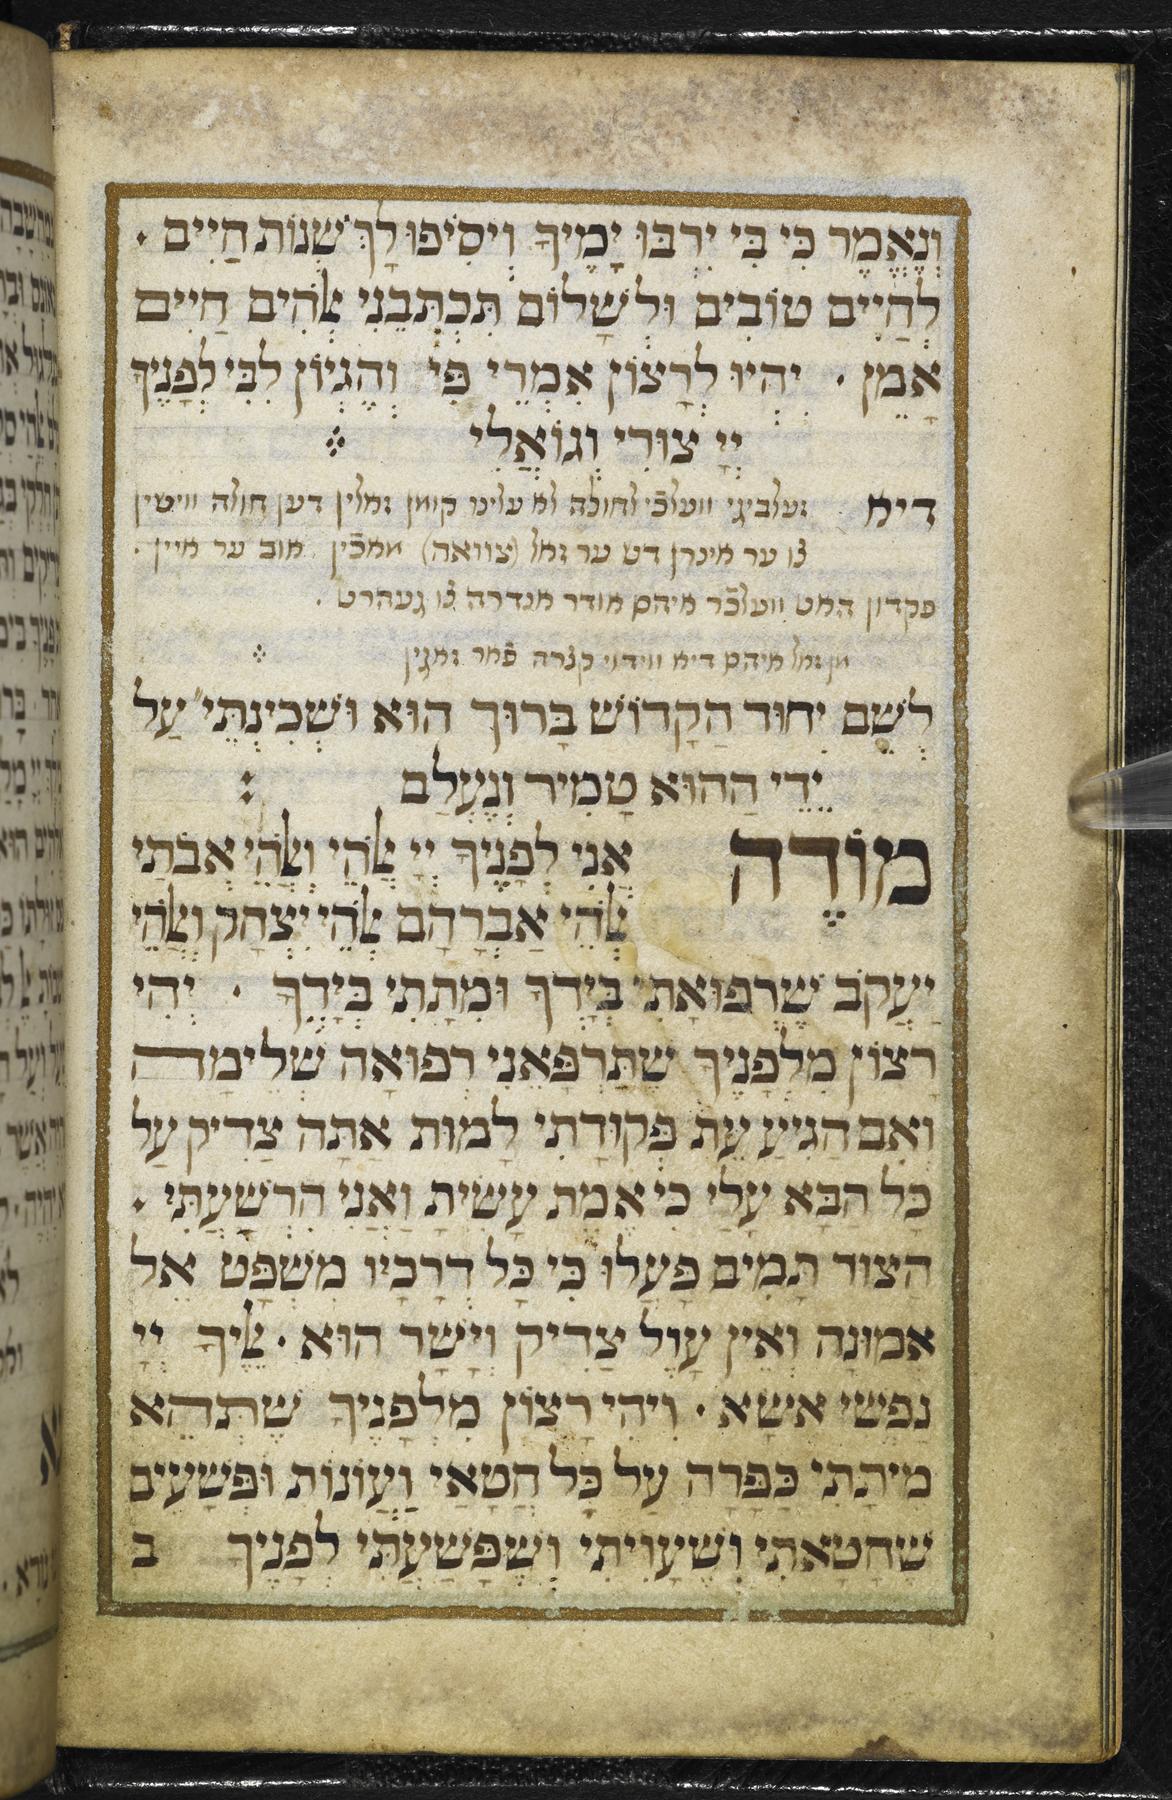 וְנֶאֱמַר כִּי בִּי יִרְבּוּ יָמֶיךָ וְיסִיפוּ לָךְ שְׁנוֹת חַיִּים ·
לְחַיִּים טוֹבִים וּלְשָׁלוֹם תִּכְתְּבֵנִי אֱלֹהִים חַיִּים
אָמֵן · יִהְיוּ לְרָצוֹן אִמְרֵי פִי וְהֶגְיוֹן לִבִּי לְפָנֶיךָ
יְיָ צוּרִי וְגוֹאֲלִי
דיא זעלביגי וועלכי לחולה לא עלינו קומן זאלין דען חולה ווישין
צו ער מינרן דש ער זאל (צוואה) מאכין אוב ער איין
פקדון האט וועלכר איהם אודר אנדרה צו געהרט ·
מן זאל איהם דיא ווידוי קצרה פאר זאגין
לְשֵׁם יִחוּד הַקָדוֹשׁ בָּרוּךְ הוּא וּשְׁכִינְתֵּי׳ עַל
יְדֵי הַהוּא טָמִיר וְנֶעְלַם
מוֹדֶה אֲנִי לְפָנֶיךָ יְיָ אֱלֹהַי וֵאלֹהֵי אֲבֹתַי
אֱלֹהֵי אַבְרָהָם אֱלֹהֵי יִצְחָק וֵאלֹהֵי
יַעֲקֹב שֶׁרְפוּאָתִי בְּיָדֶךָ וּמִתָתִי בְּיָדֶךָ · יְהִי
רָצוֹן מִלְפָנֶיךָ שֶׁתִּרְפָּאֵנִי רְפוּאָה שְׁלֵימָה
וְאִם הַגִיעַ עֵת פְּקוּדָתִי לָמוּת אַתָּה צַדִיק עַל
כָּל הַבָּא עָלַי כִּי אֱמֶת עָשִׂיתָ וַאֲנִי הִרְשָׁעְתִּי ·
הַצוּר תָּמִים פָּעֳלוֹ כִּי כָּל דְרָכָיו מִשְׁפָּט אֵל
אֱמוּנָה וְאֵין עָוֶל צַדִיק וְיָשָׁר הוּא · אֵלֶיךָ יְיָ
נַפְשִׁי אֶשָׂא · וִיהִי רָצוֹן מִלְפָנֶיךָ שֶׁתְּהֵא
מִיתָתִי כַּפָּרָה עַל כָּל חֲטָאַי וַעֲוֹנוֹת וּפְּשָׁעִים
שֶׁחָטָאתִי וְשֶׁעָוִיתִי וְשֶׁפָּשַׁעְתִּי לְפָנֶיךָ ב